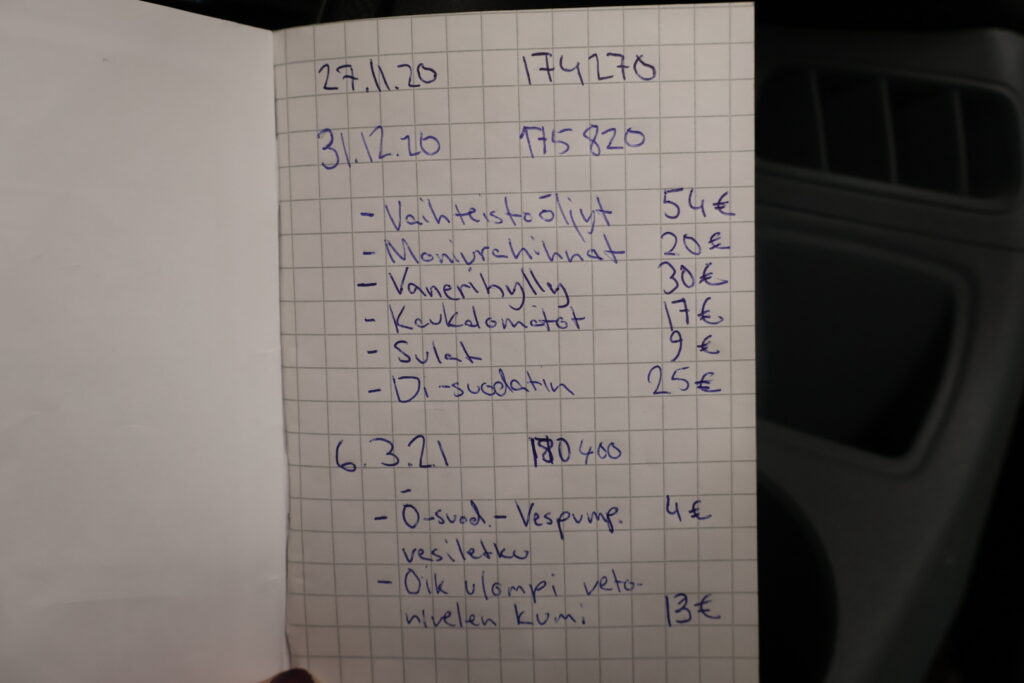 27.11.20 174270
31.12.20 175820
- Vaihteistoöljyt 54€
- Moniurahihnat 20€
- Vanerihylly 30€
- Kaukalomatot 17€
- Sulat 9€
- Di-suodatin 25€
6.3.21 180400
- Ö-suod.- Vespump. 4€
vesiletku
- Oik ulompi veto-
nivelen kumi 13€